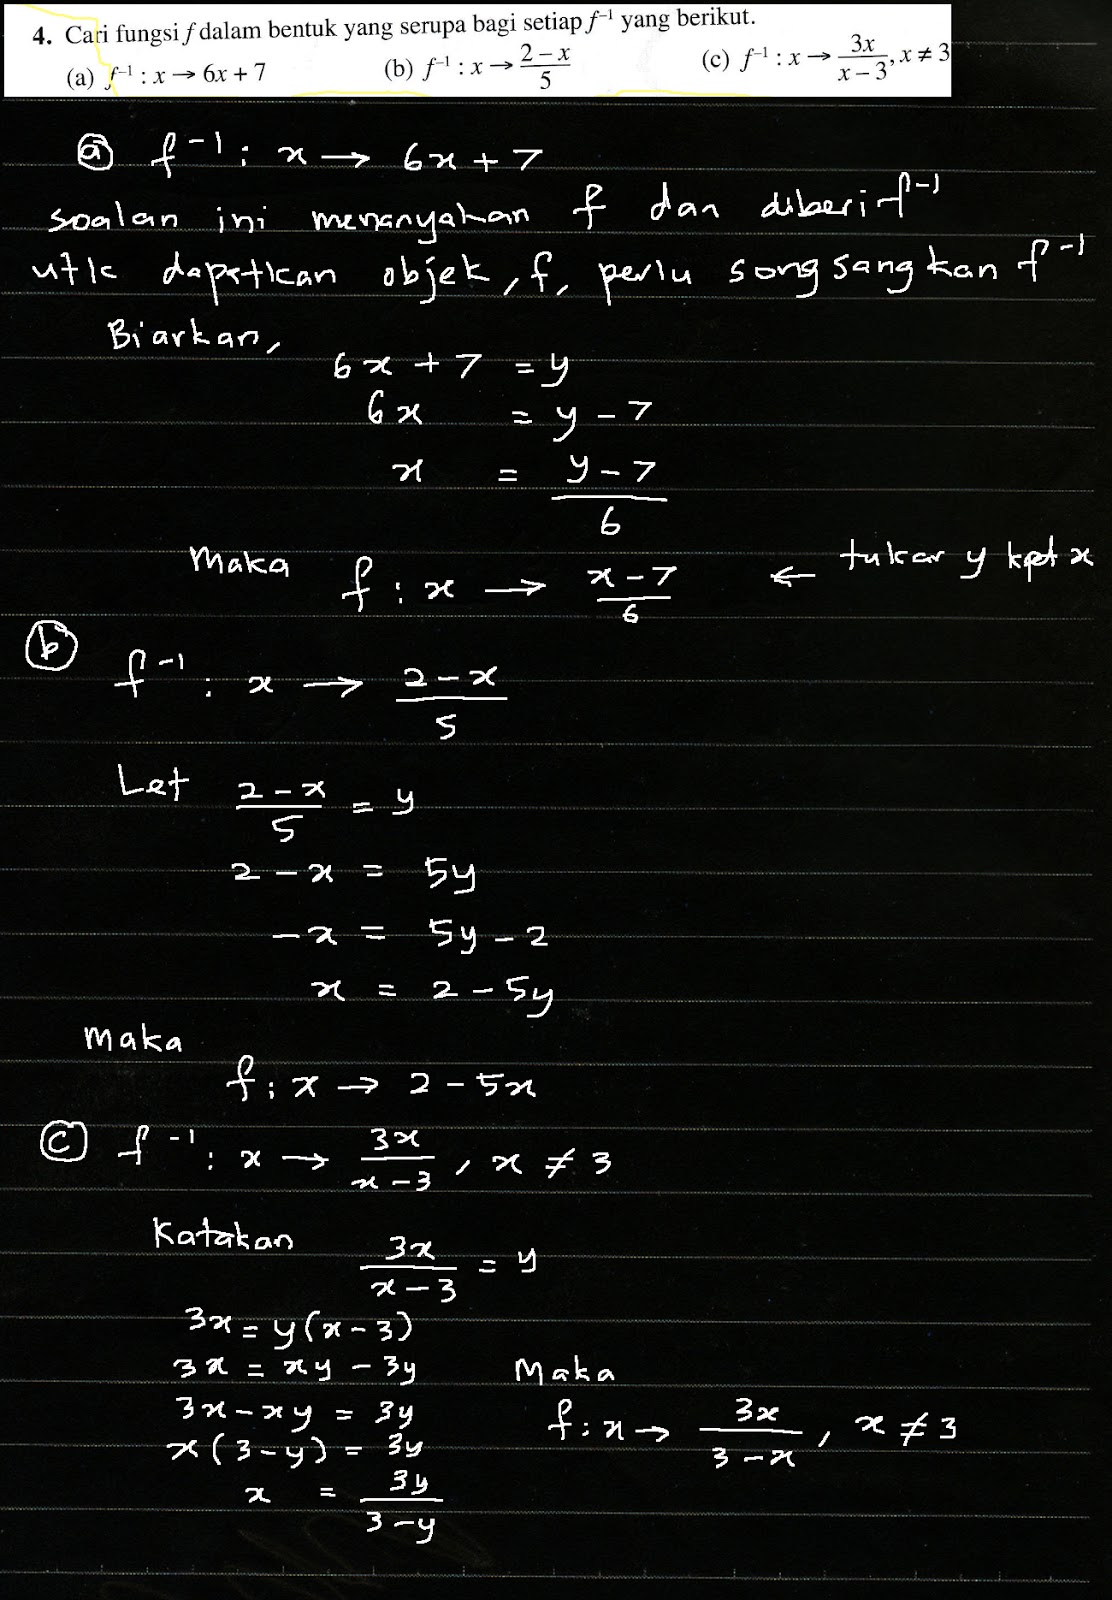 4. Cari fungsi f dalam bentuk yang serupa bagi setiap f⁻¹ yang berikut.
(a) f⁻¹ : x → 6x + 7 (b) f⁻¹ : x → (2 – x)/5 (c) f⁻¹ : x → 3x/(x – 3), x ≠ 3
(a) f⁻¹ : x → 6x + 7
soalan ini menanyakan f dan diberi f⁻¹
utk dapatkan objek, f, perlu songsangkan f⁻¹
Biarkan,
6x + 7 = y
6x = y – 7
x = (y – 7)/6
Maka f : x → (x – 7)/6 ← tukar y kpd x
(b) f⁻¹ : x → (2 – x)/5
Let (2 – x)/5 = y
2 – x = 5y
–x = 5y – 2
x = 2 – 5y
Maka
f : x → 2 – 5x
(c) f⁻¹ : x → 3x/(x – 3), x ≠ 3
Katakan 3x/(x – 3) = y
3x = y(x – 3)
3x = xy – 3y
3x – xy = 3y
x(3 – y) = 3y
x = 3y/(3 – y)
Maka
f : x → 3x/(3 – x), x ≠ 3